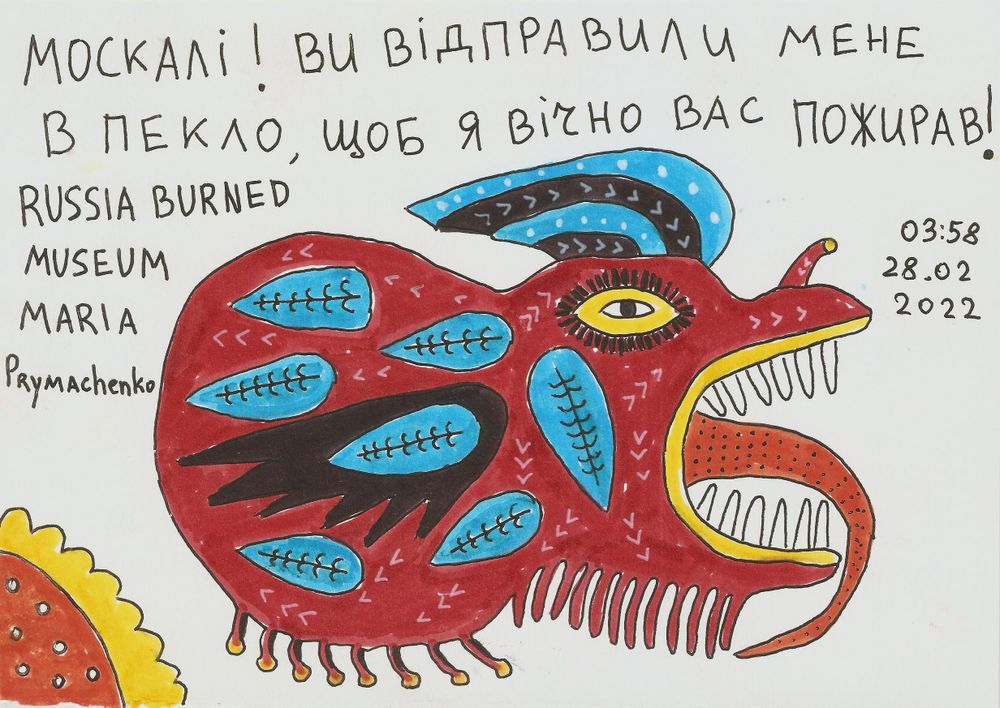 МОСКАЛІ! ВИ ВІДПРАВИЛИ МЕНЕ
В ПЕКЛО, ЩОБ Я ВІЧНО ВАС ПОЖИРАВ!
RUSSIA BURNED
MUSEUM
MARIA
PRYMACHENKO
03:58
28.02
2022